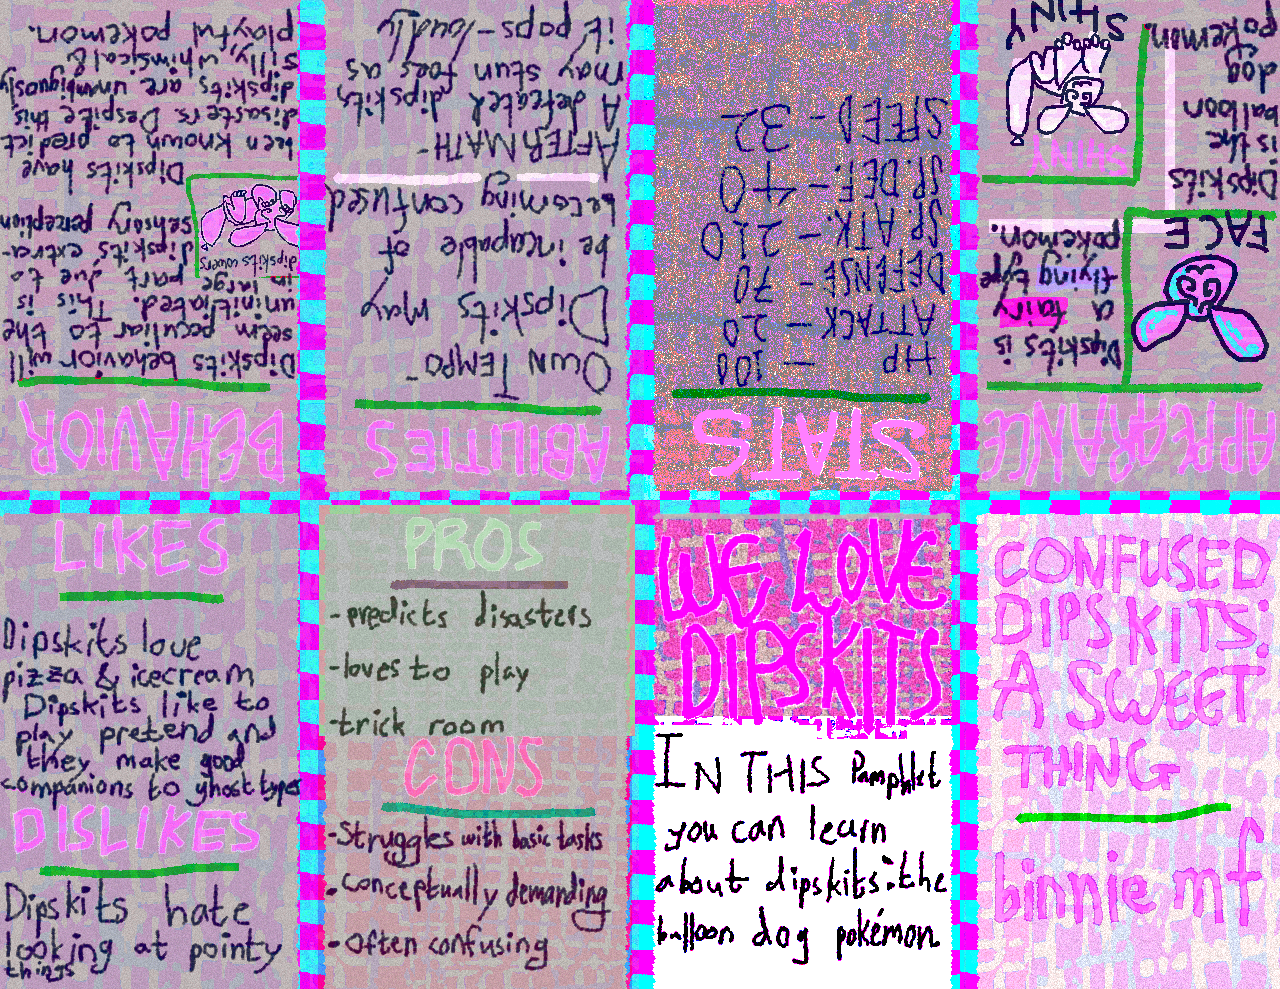 CONFUSED
DIPSKITS:
A SWEET
THING
binnie mf
APPEARANCE
Dipskits is
a fairy
flying type
pokemon.
FACE
Dipskits
is the
balloon
dog
pokemon.
SHINY
SHINY
STATS
HP - 100
ATTACK - 20
DEFENSE - 70
SP. ATK. - 210
SP. DEF. - 40
SPEED - 32
ABILITIES
OWN TEMPO-
Dipskits may
be incapable of
becoming confused
AFTERMATH-
A defeated dipskits
may stun foes as
it pops - loudly
BEHAVIOR
Dipskits behavior will
seem peculiar to the
uninitiated. This is
in large
part due to
dipskits extra-
sensory perception
dipskits cowers
Dipskits have
been known to predict
disasters. Despite this,
dipskits are unambiguously
silly, whimsical &
playful pokemon.
LIKES
Dipskits love
pizza & icecream
Dipskits like to
play pretend and
they make good
companions to ghost types
DISLIKES
Dipskits hate
looking at pointy
things
PROS
-predicts disasters
-loves to play
-trick room
CONS
-Struggles with basic tasks
-conceptually demanding
-Often confusing
WE LOVE
DIPSKITS
IN THIS Pamphlet
you can learn
about dipskits: the
balloon dog pokémon